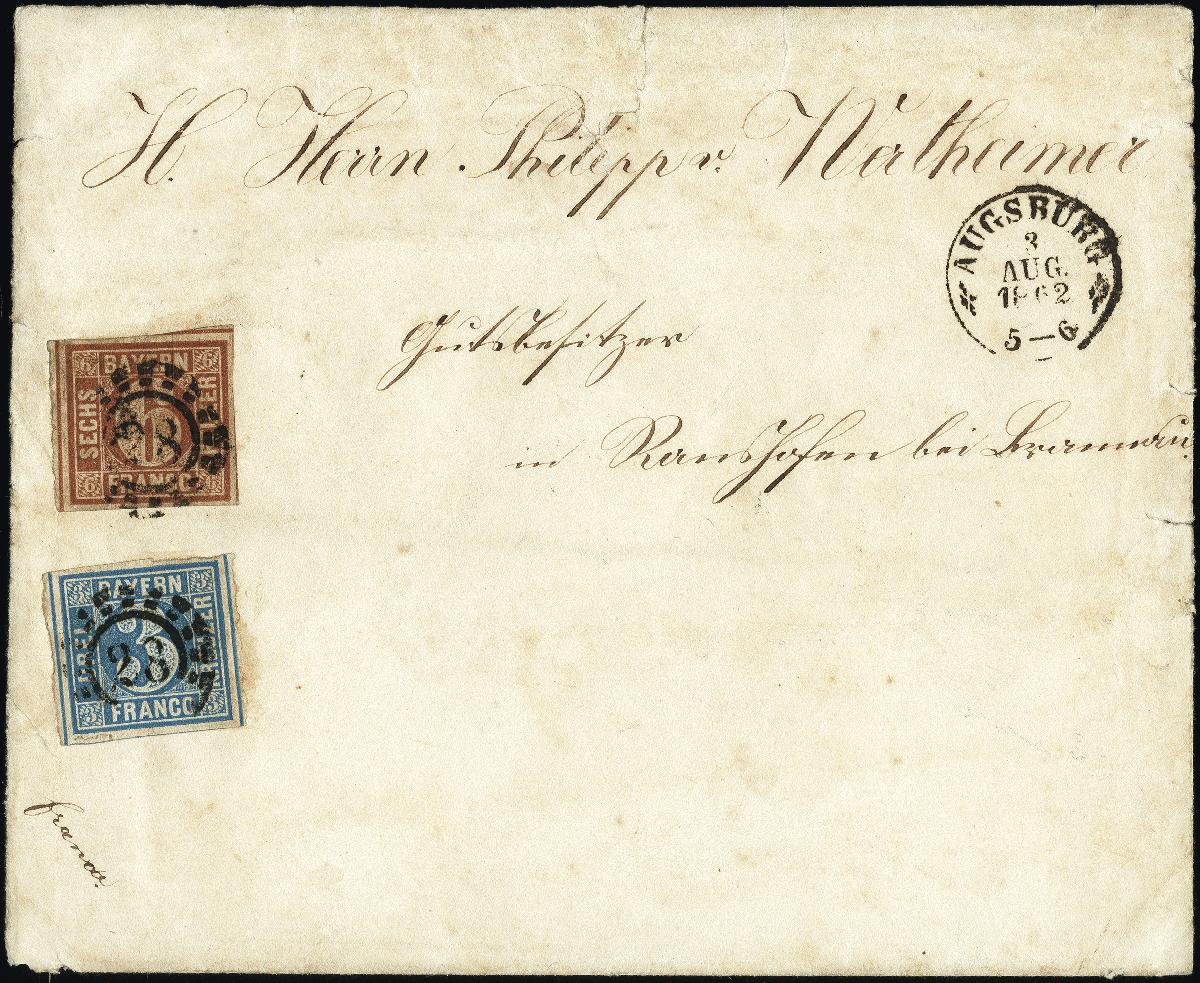 H. Herrn Philipp v. Wertheimer
AUGSBURG
3
AUG.
1862
5—6
Gutsbesitzer
in Ranshofen bei Braunau.
BAYERN
SECHS
6
FRANCO
28
BAYERN
DREI
3
FRANCO
28
franco.